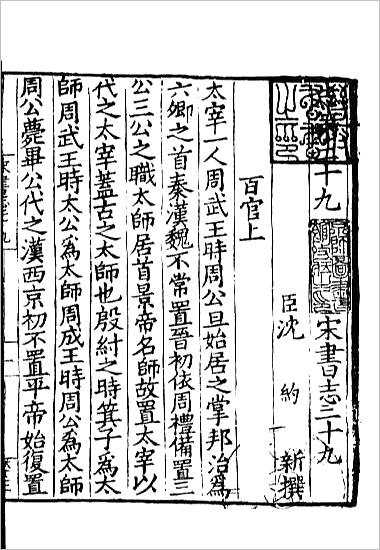 十九 宋書志三十九
臣沈 約 新撰
百官上
太宰一人周武王時周公旦始居之掌邦治爲
六卿之首秦漢魏不常置晉初依周禮備置三
公三公之職太師居首景帝名師故置太宰以
代之太宰蓋古之太師也殷紂之時箕子爲太
師周武王時太公爲太師周成王時周公爲太師
周公薨畢公代之漢西京初不置平帝始復置